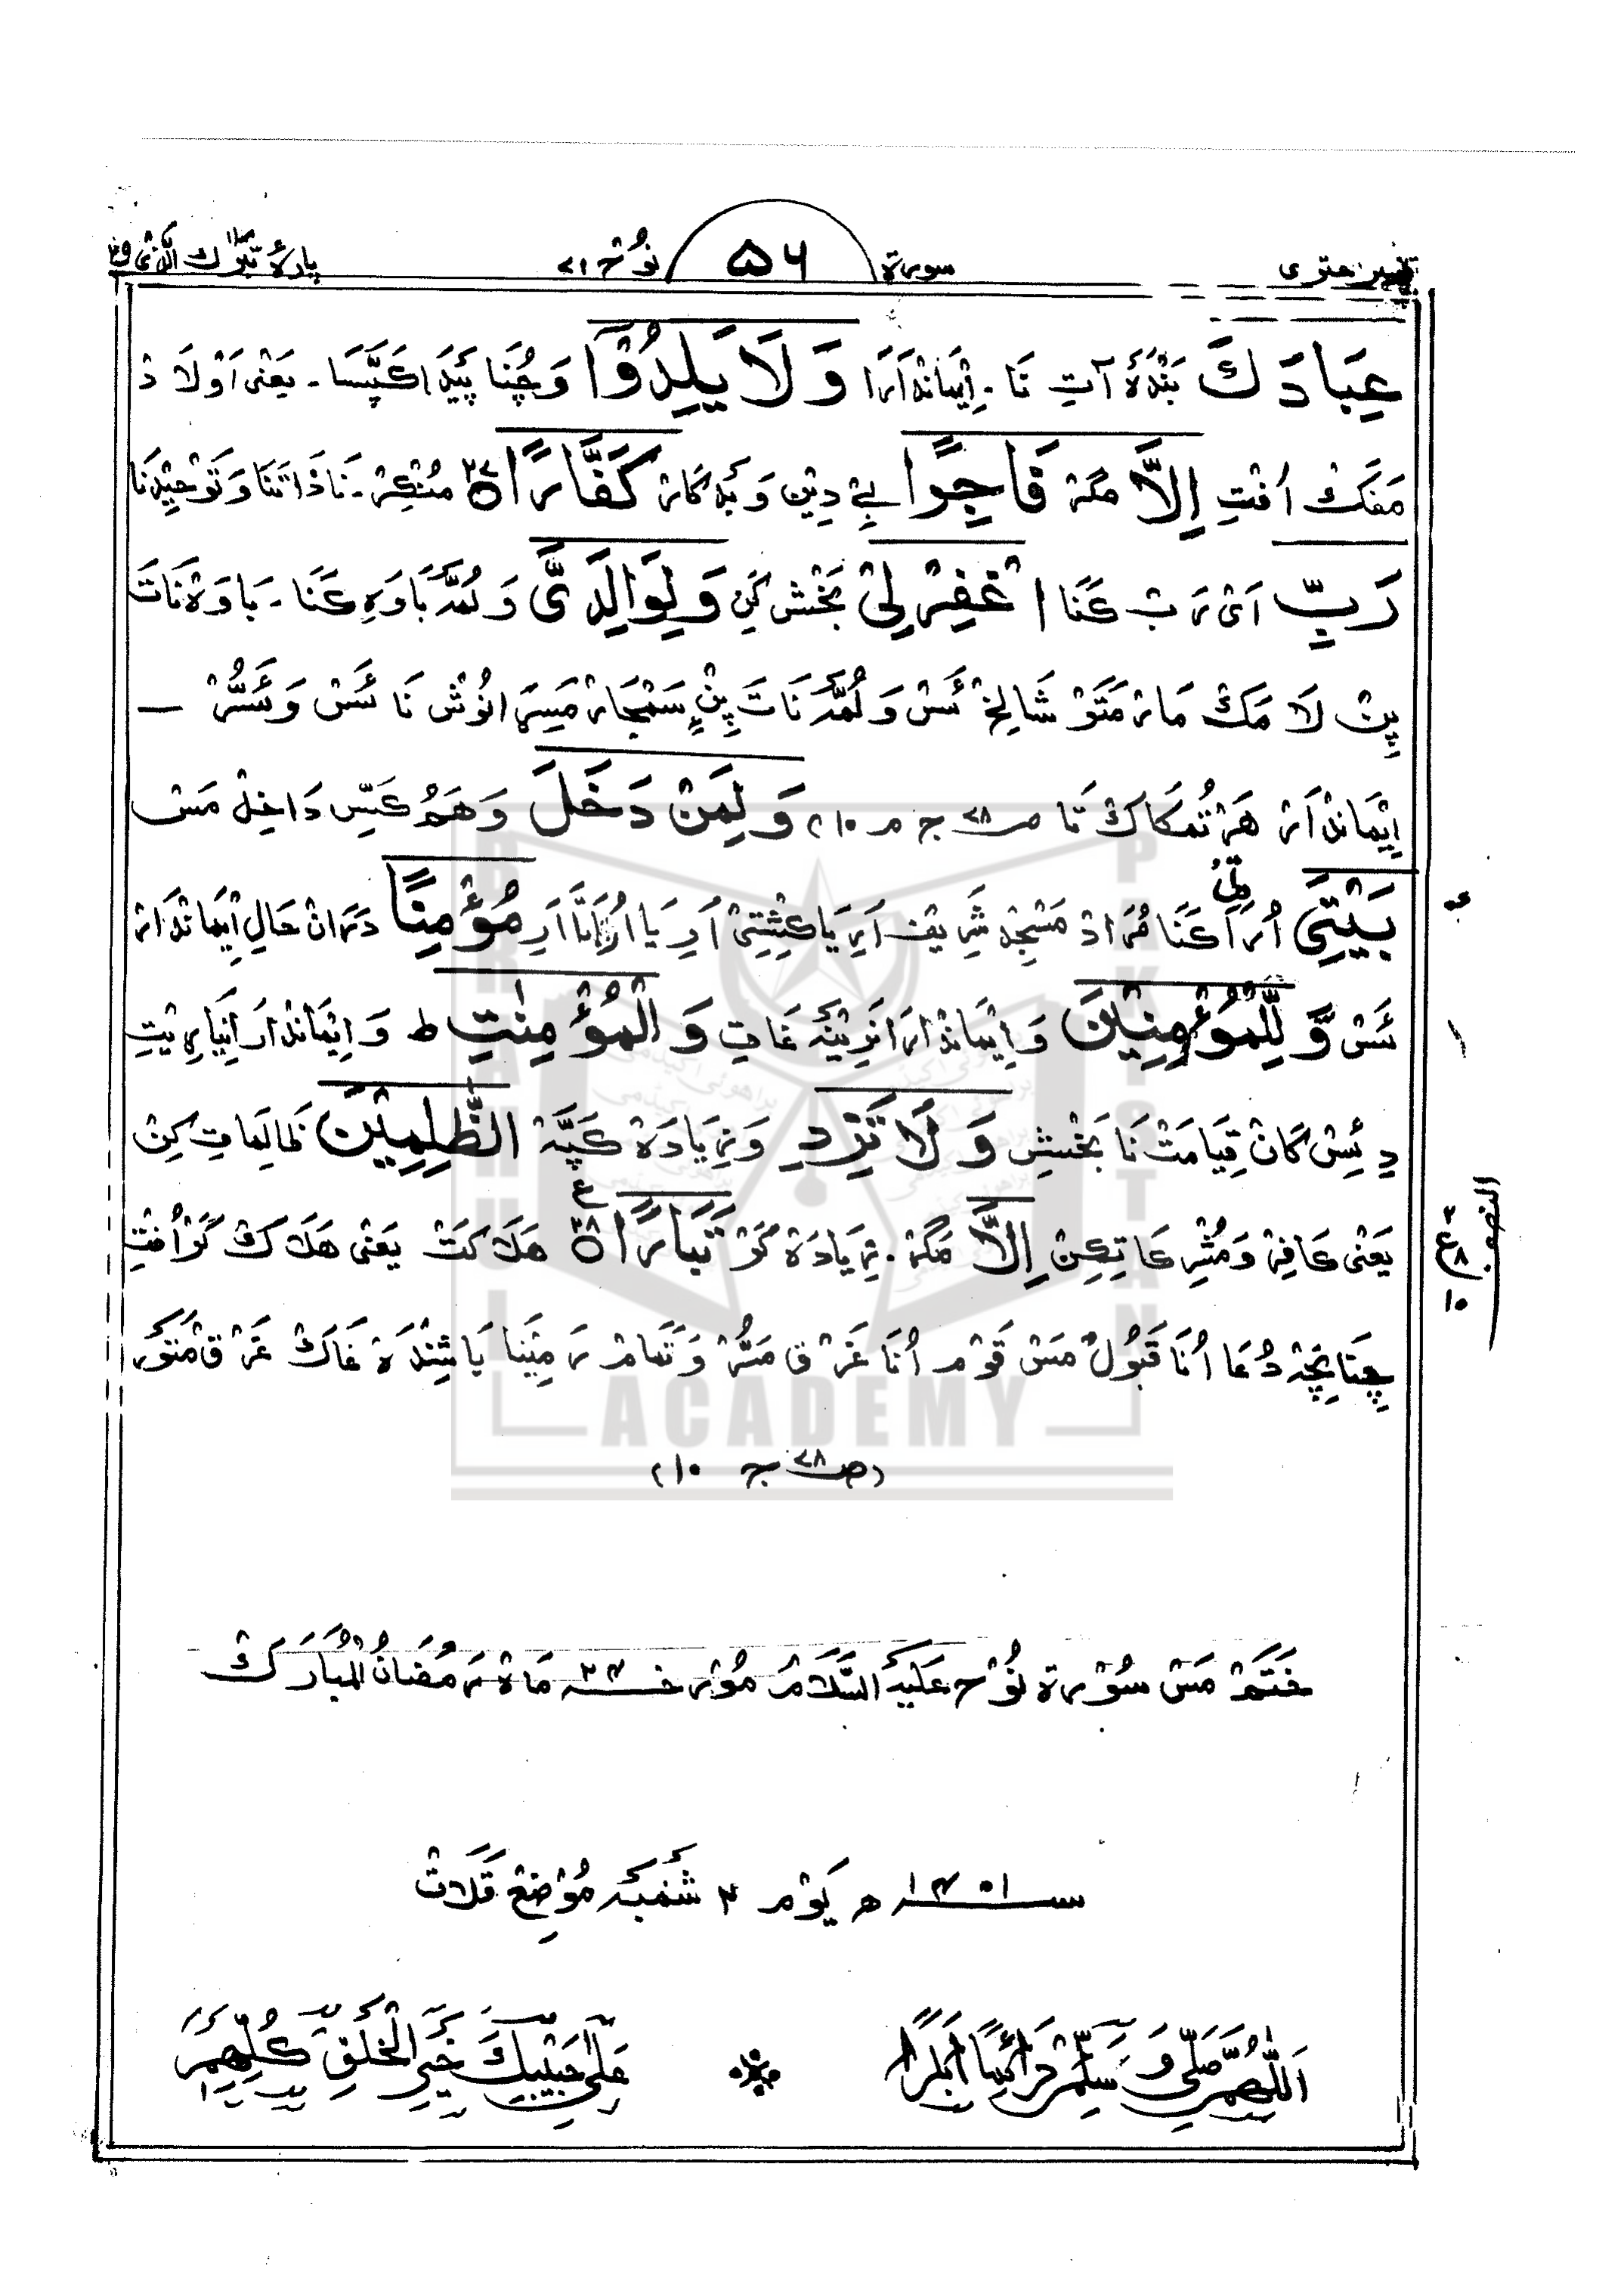 سورۃ ۵۶ نُوْح ۷۱
پارۂ تَبٰرَكَ الَّذِیْ ۲۹
عِبَادَكَ بَنْدَہُ آتِ نَا۔ اِیْمَانْدَارَا وَلَا یَلِدُوْۤا وَ چُنَا پَیْدَا کَپَّسَا۔ یَعْنِیْ اَوْلَادْ
مَفَکْ اُفْتِ اِلَّا مَگہْ فَاجِرًا بے دِیْن وَ بَدْکَارْ كَفَّارًا ۝۲۷ مُنْکِرْ۔ نَا ذَاتَنَا وَ تَوْحِیْدْنَا
رَبِّ اَیْ رَبْ کَنَا اغْفِرْ لِیْ بَخْش کَنِ وَ لِوَالِدَیَّ وَ لُمَّہْ بَاوَہِ کَنَا۔ بَاوَہْ نَاتَ
پِنْ لَامَکْ مَارْ مَتَوْ شَالِخْ ئَسْ وَ لُمَّہْ نَاتَ پِنْ سَمْجَارْ مَسِرَ انُوْش نَا ئَسْ وَ ئَسُّرْ —
اِیْمَانْدَارْ هَرْتُمَکَاکْ تَا صـ۷۸ ج م ۱۰) وَ لِمَنْ دَخَلَ وَ هَمُ کَسِّ دَاخِلْ مَسْ
بَیْتِیَ اُرَا کَنَا مُرَادْ مَسْجِدْ شَرِیْف اَرِ یَا کِشْتِیْ اَرِ یَا اُرَانَا اَرِ مُؤْمِنًا دَرَانْ حَالِ اِیْمَانْدَارْ
ئَسْ وَّ لِلْمُؤْمِنِیْنَ وَ اِیْمَانْدَارَا نَرِیْنَہْ غَاتِ وَ الْمُؤْمِنٰتِ ط وَ اِیْمَانْدَارَ اَنِیَارِیْتِ
دِئِسْکَانْ قِیَامَتْ نَا بَخْشِش وَ لَا تَزِدِ وَ زِیَادَہْ کَپَّہْ الظّٰلِمِیْنَ ظَالِمَاتِ کِنْ
یَعْنِیْ کَافِرْ وَ مُشْرِکَاتِکِنْ اِلَّا مَگہْ۔ زِیَادَہْ کَرْ تَبَارًا ۝۲۸ هَلَاکَتْ یَعْنِیْ هَلَاکْ کَرْ اُفْتِ
چِنَانِچِہْ دُعَا اُنَا قَبُوْل مَسْ قَوْم اُنَا غَرْق مَسُّرْ وَ تَمَام زَمِیْنَا بَاشِنْدَہْ غَاکْ غَرْق مَسُّرْ
(صـ۷۸ ج ۱۰)
النصف
خَتَمْ مَسْ سُوْرۃ نُوْح عَلَیْہِ السَّلَامُ مُوْرخـہ ۲۳ مَاہْ رَمَضَانُ الْمُبَارَکْ
سـ۱۴۰۱ـہ یَوْم ۳ شَمْبَہ مُوْضِعْ قَلَاتْ
اَللّٰهُمَّ صَلِّیْ وَ سَلِّمْ دَائِمًا اَبَدًا
عَلٰی حَبِیْبِكَ خَیْرِ الْخَلْقِ كُلِّهِمِ
BRAHUI
ACADEMY
PAKISTAN